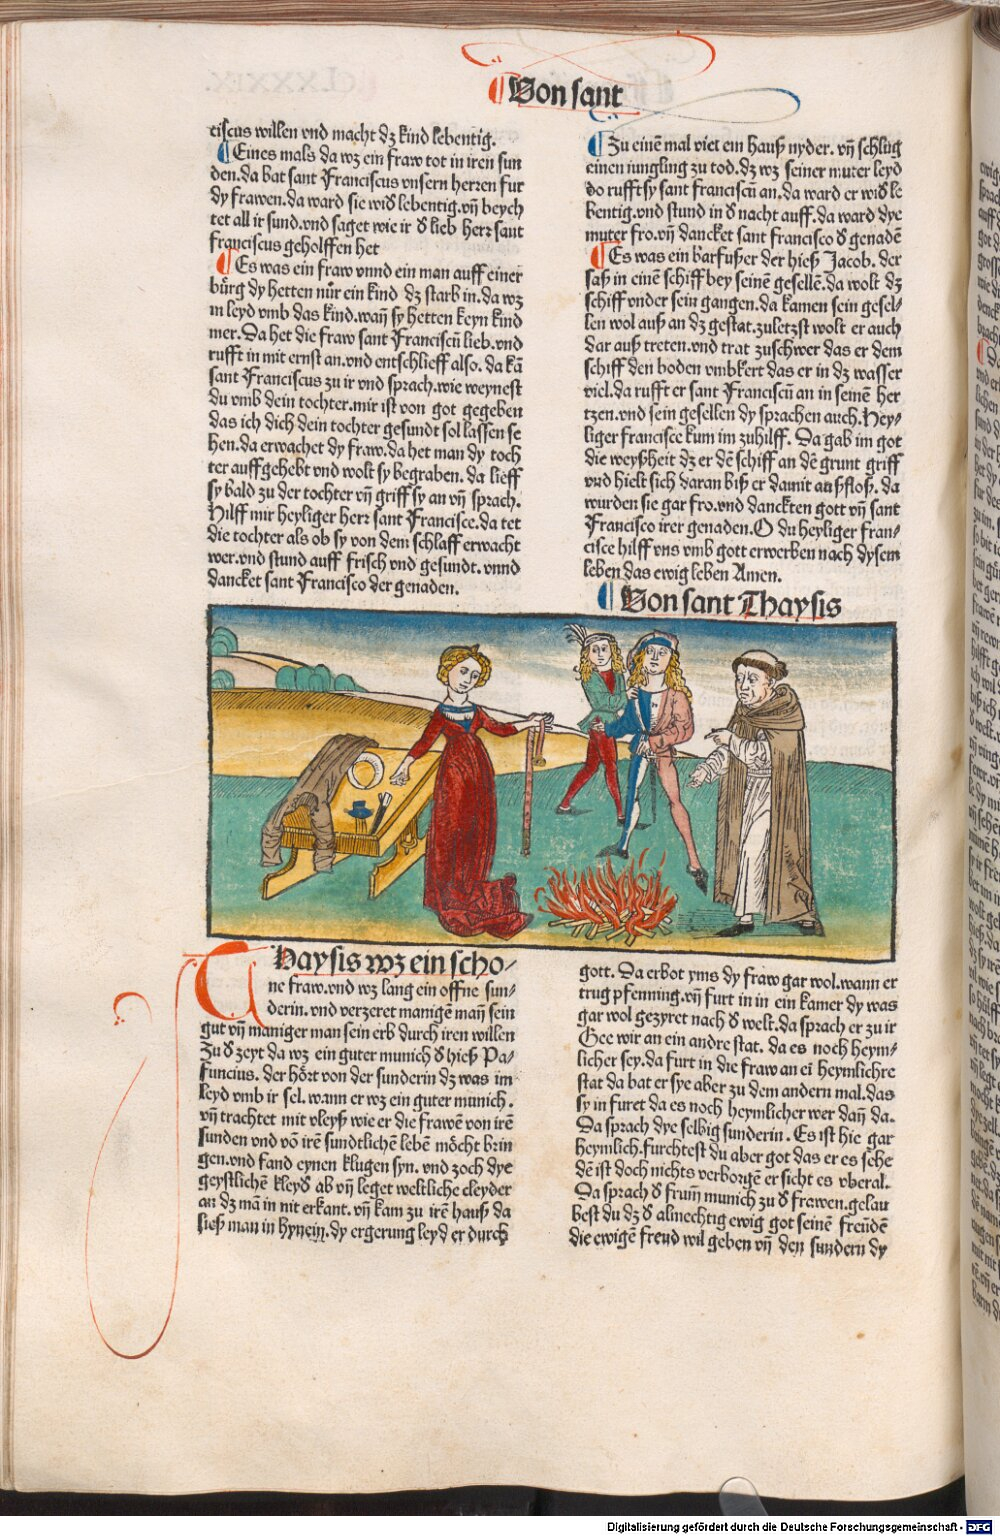 Von sant
ciscus willen vnd macht dz kind lebentig.
Eines mals da wz ein fraw tot in iren sun
den.da bat sant Franciscus vnsern herren fur
dy frawen.da ward sie wiđ lebentig.vñ beych
tet all ir sund.vnd saget wie ir đ lieb herr sant
franciscus geholffen het
Es was ein fraw vnnd ein man auff einer
bürg dy hetten nür ein kind dz starb in.da wz
in leyd vmb das kind.wañ sy hetten keyn kind
mer.Da het die fraw sant Franciscũ lieb.vnd
rufft in mit ernst an.vnd entschlieff also. da kã
sant Franciscus zu ir vnd sprach.wie weynest
du vmb dein tochter.mir ist von got gegeben
das ich dich dein tochter gesundt sol lassen se
hen.da erwachet dy fraw.da het man dy toch
ter auffgehebt vnd wolt sy begraben. da lieff
sy bald zu der tochter vñ griff sy an vñ sprach.
Hilff mir heyliger herr sant Francisce.da tet
die tochter als ob sy von dem schlaff erwacht
wer.vnd stund auff frisch vnd gesundt. vnnd
dancket sant Francisco der genaden.
Zu einẽ mal viel ein hauß nyder. vñ schlug
einen iungling zu tod.dz wz seiner muter leyd
do rufft sy sant franciscũ an.da ward er wiđ le
bentig.vnd stund in đ nacht auff.da ward dye
muter fro.vñ dancket sant francisco đ genadẽ
Es was ein barfußer der hieß Jacob. der
saß in einẽ schiff bey seinẽ gesellẽ.da wolt dz
schiff vnder sein gangen.da kamen sein gesel-
len wol auß an dz gestat.zuletzst wolt er auch
dar auß treten.vnd trat zuschwer das er dem
schiff den boden vmbkert das er in dz wasser
viel.da rufft er sant Franciscũ an in seinẽ her
tzen.vnd sein gesellen dy sprachen auch.Hey-
liger francisce kum im zuhilff. Da gab im got
die weyßheit dz er dẽ schiff an dẽ grunt griff
vnd hielt sich daran biß er damit außfloß. da
wurden sie gar fro.vnd danckten gott vñ sant
Francisco irer genaden.O du heyliger fran-
cisce hilff vns vmb gott erwerben nach dysem
leben das ewig leben Amen.
Von sant Thaysis
Thaysis wz ein scho-
ne fraw.vnd wz lang ein offne sun-
derin.vnd verzeret manigẽ mañ sein
gut vñ maniger man sein erb durch iren willen
Zu đ zeyt da wz ein guter munich đ hieß Pa-
funcius. der hört von der sunderin dz was im
leyd vmb ir sel. wann er wz ein guter munich.
vñ trachtet mit vleyß wie er die frawẽ von irẽ
sunden vnd võ irẽ sundtlichẽ lebẽ möcht brin
gen.vnd fand eynen klugen syn. vnd zoch dye
geystlichẽ kleyđ ab vñ leget weltliche cleyder
an dz mã in nit erkant. vñ kam zu irẽ hauß da
ließ man in hynein.dy ergerung leyd er durch
gott. Da erbot yms dy fraw gar wol.wann er
trug pfenning.vñ furt in in ein kamer dy was
gar wol gezyret nach đ welt.da sprach er zu ir
Gee wir an ein andre stat. da es noch heym-
licher sey.da furt in die fraw an eĩ heymlichre
stat da bat er sye aber zu dem andern mal.das
sy in furet da es noch heymlicher wer dañ da.
Da sprach dye selbig sunderin. Es ist hie gar
heymlich.furchtest du aber got das er es sehe
dẽ ist doch nichts verborgẽ er sicht es vberal.
Da sprach đ frum̃ munich zu đ frawen.gelau
best du dz đ almechtig ewig got seinẽ freũdẽ
die ewigẽ freud wil geben vñ den sundern dy
Digitalisierung gefördert durch die Deutsche Forschungsgemeinschaft - DFG